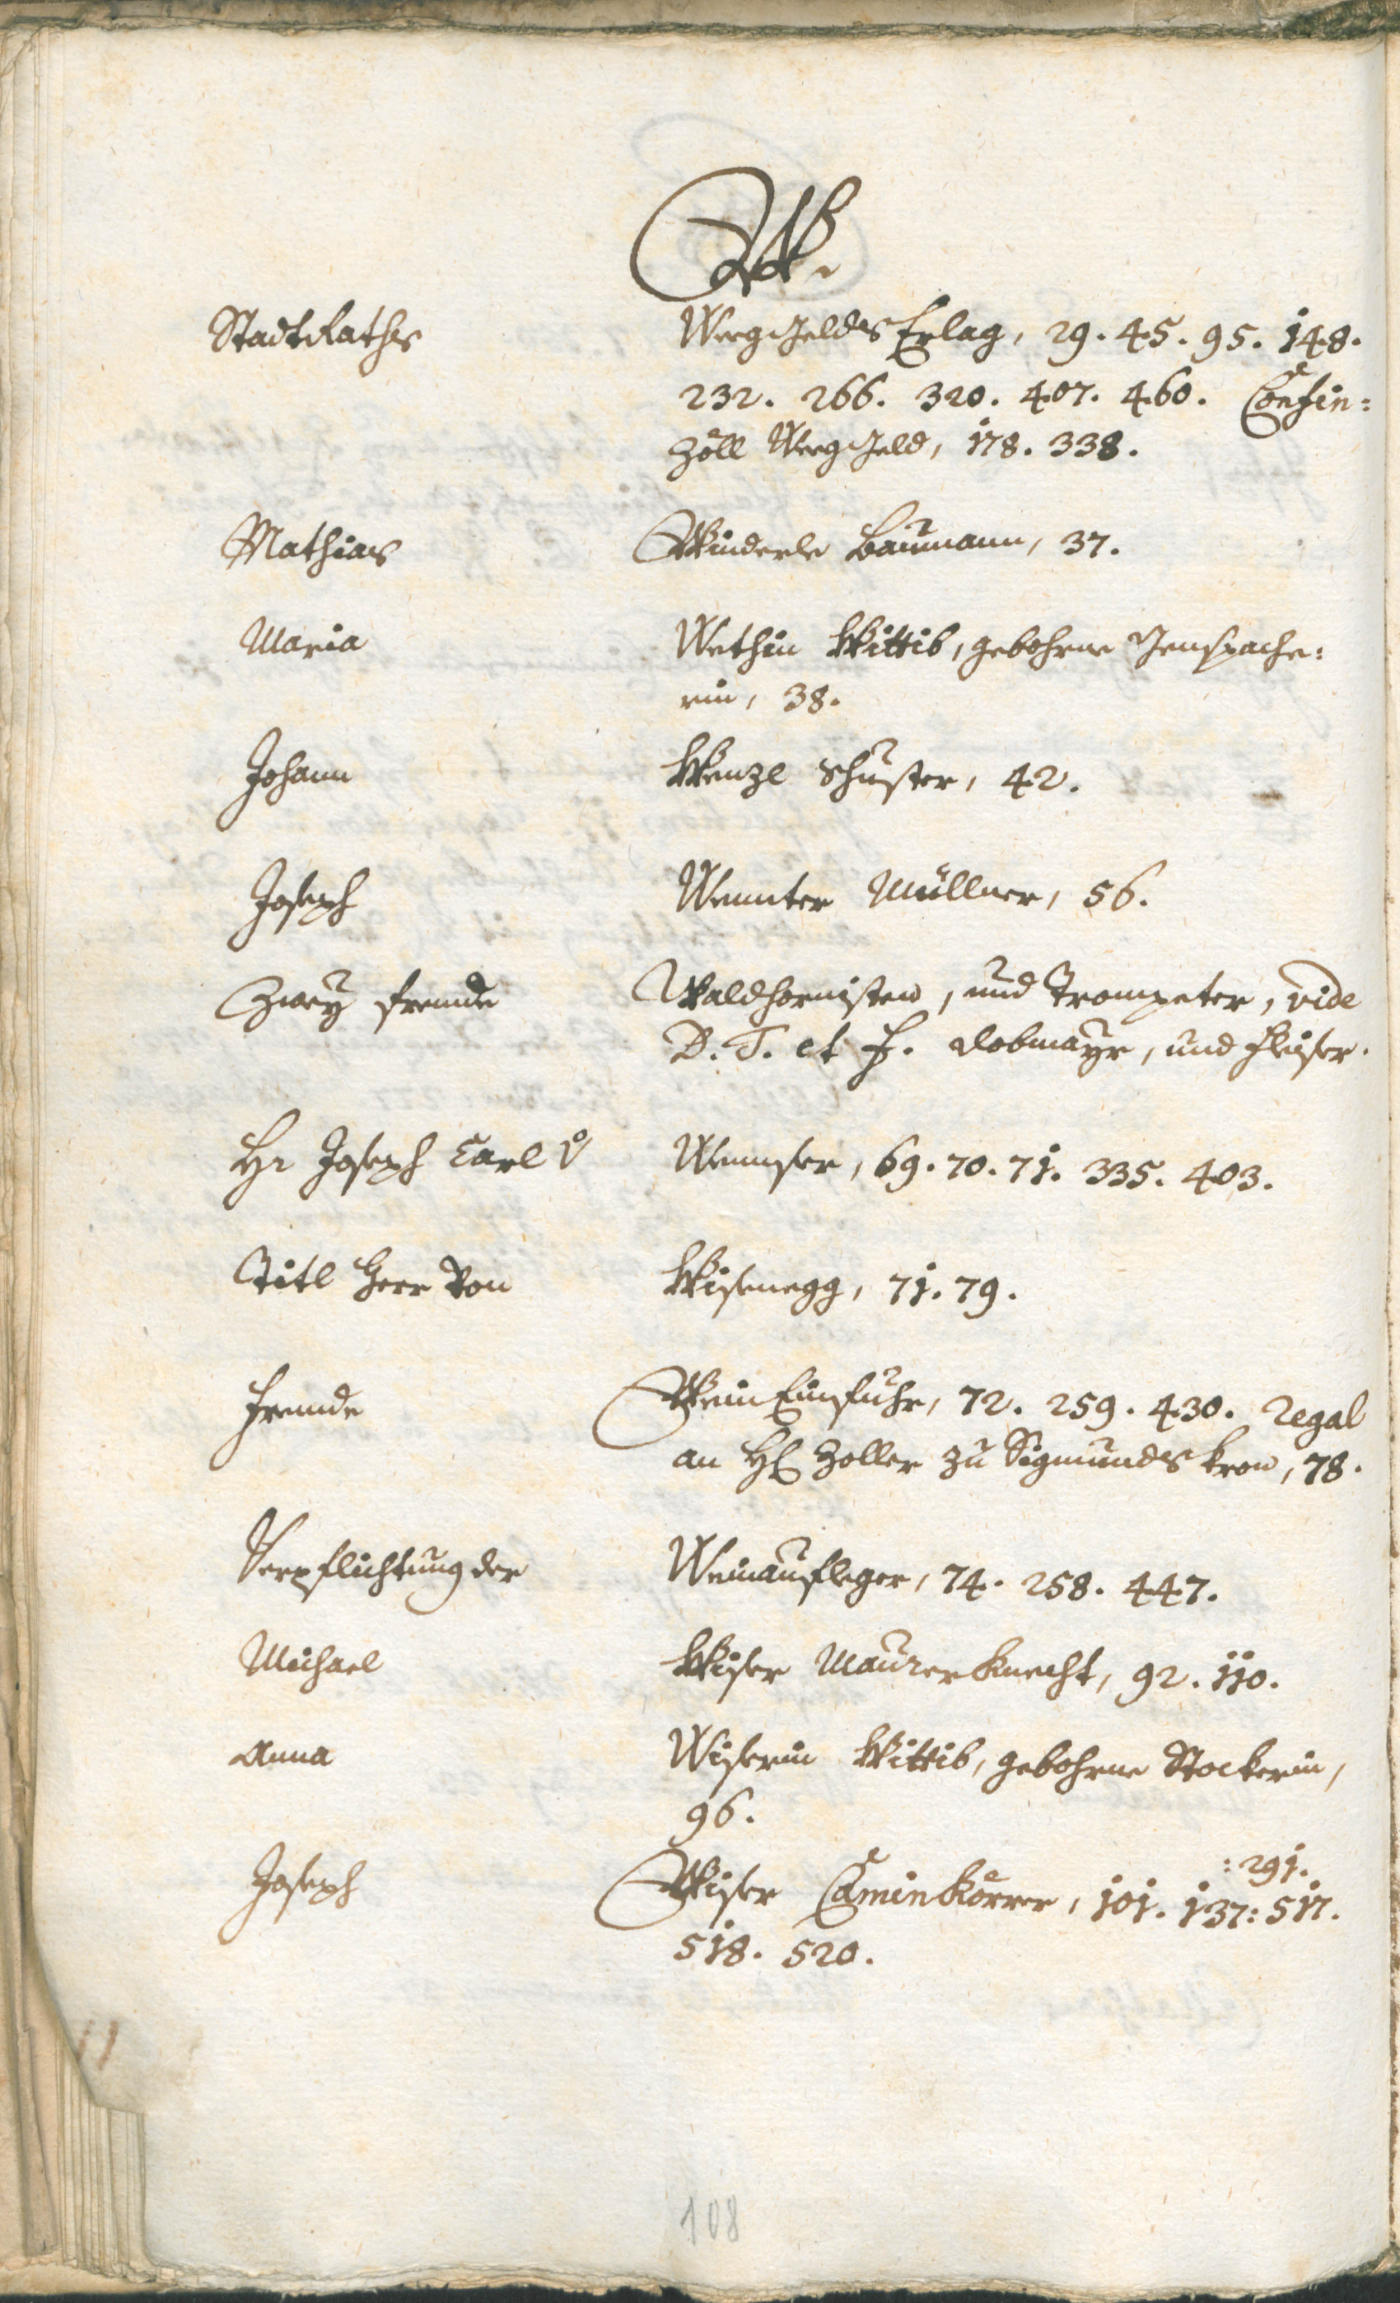 W.
StadtRaths Weeg Gelds Erlag, 29. 45. 95. 148.
232. 266. 320. 407. 460. Confin=
Zoll Weeg Geld, 178. 338.
Mathias Winderle Baumann, 37.
Maria Wethin Wittib, gebohrne Jenspache=
rin, 38.
Johann Wenzl Schuster, 42.
Joseph Wennter Müllner, 56.
Zwey frembde Waldhornisten, und Trompeter, vide
D. T. et F. Dobmayr, und Fleiser.
Hr Joseph Carl v Wennser, 69. 70. 71. 335. 403.
Titl Herr Von Wisenegg, 71. 79.
Fremde Wein Einfuhr, 72. 259. 430. Regal
an H Zoller zu Sigmunds kron, 78.
Verpflichtung der Weinaufleger, 74. 258. 447.
Michael Wiser Maurer Knecht, 92. 110.
Anna Wiserin Wittib, gebohrne Stockerin,
96.
: 291.
Joseph Wiser Caminkörrer, 101. 137: 517.
518. 520.
108